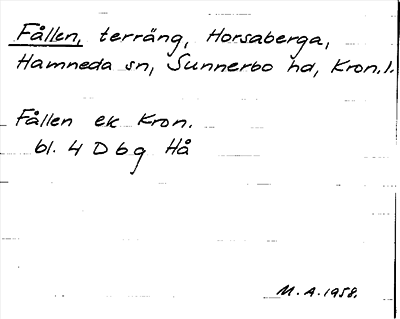 Fållen, terräng, Horsaberga,
Hamneda sn, Sunnerbo hd, Kron.l.
Fållen ek Kron.
bl. 4 D b g Hå
M.A. 1958.